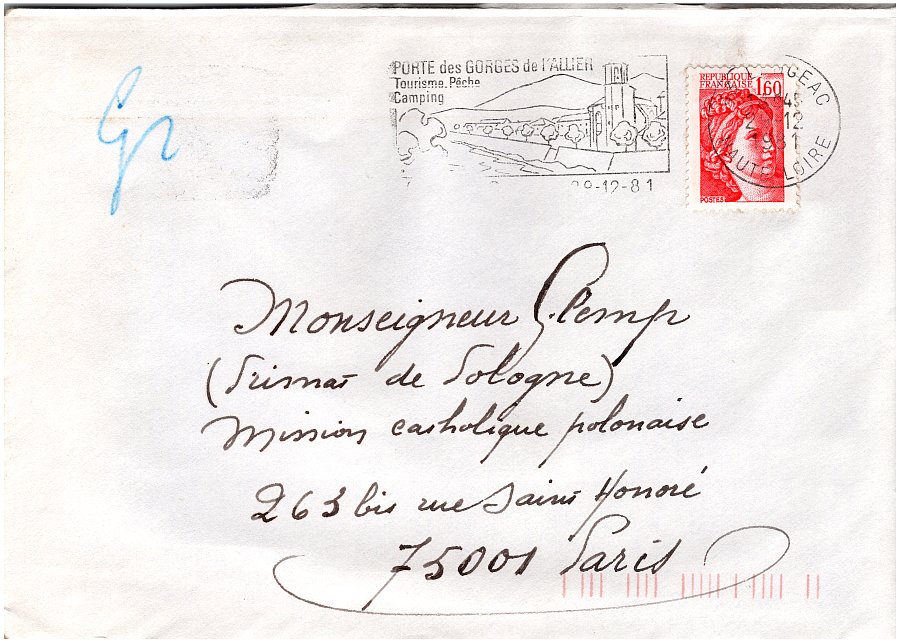 Gr
PORTE des GORGES de l'ALLIER
Tourisme.Pêche
Camping
29-12-81
REPUBLIQUE
FRANÇAISE
1,60
POSTES
GEAC
12
981
HAUTE LOIRE
Monseigneur Glemp
(Primat de Pologne)
Mission catholique polonaise
263 bis rue Saint Honoré
75001 Paris